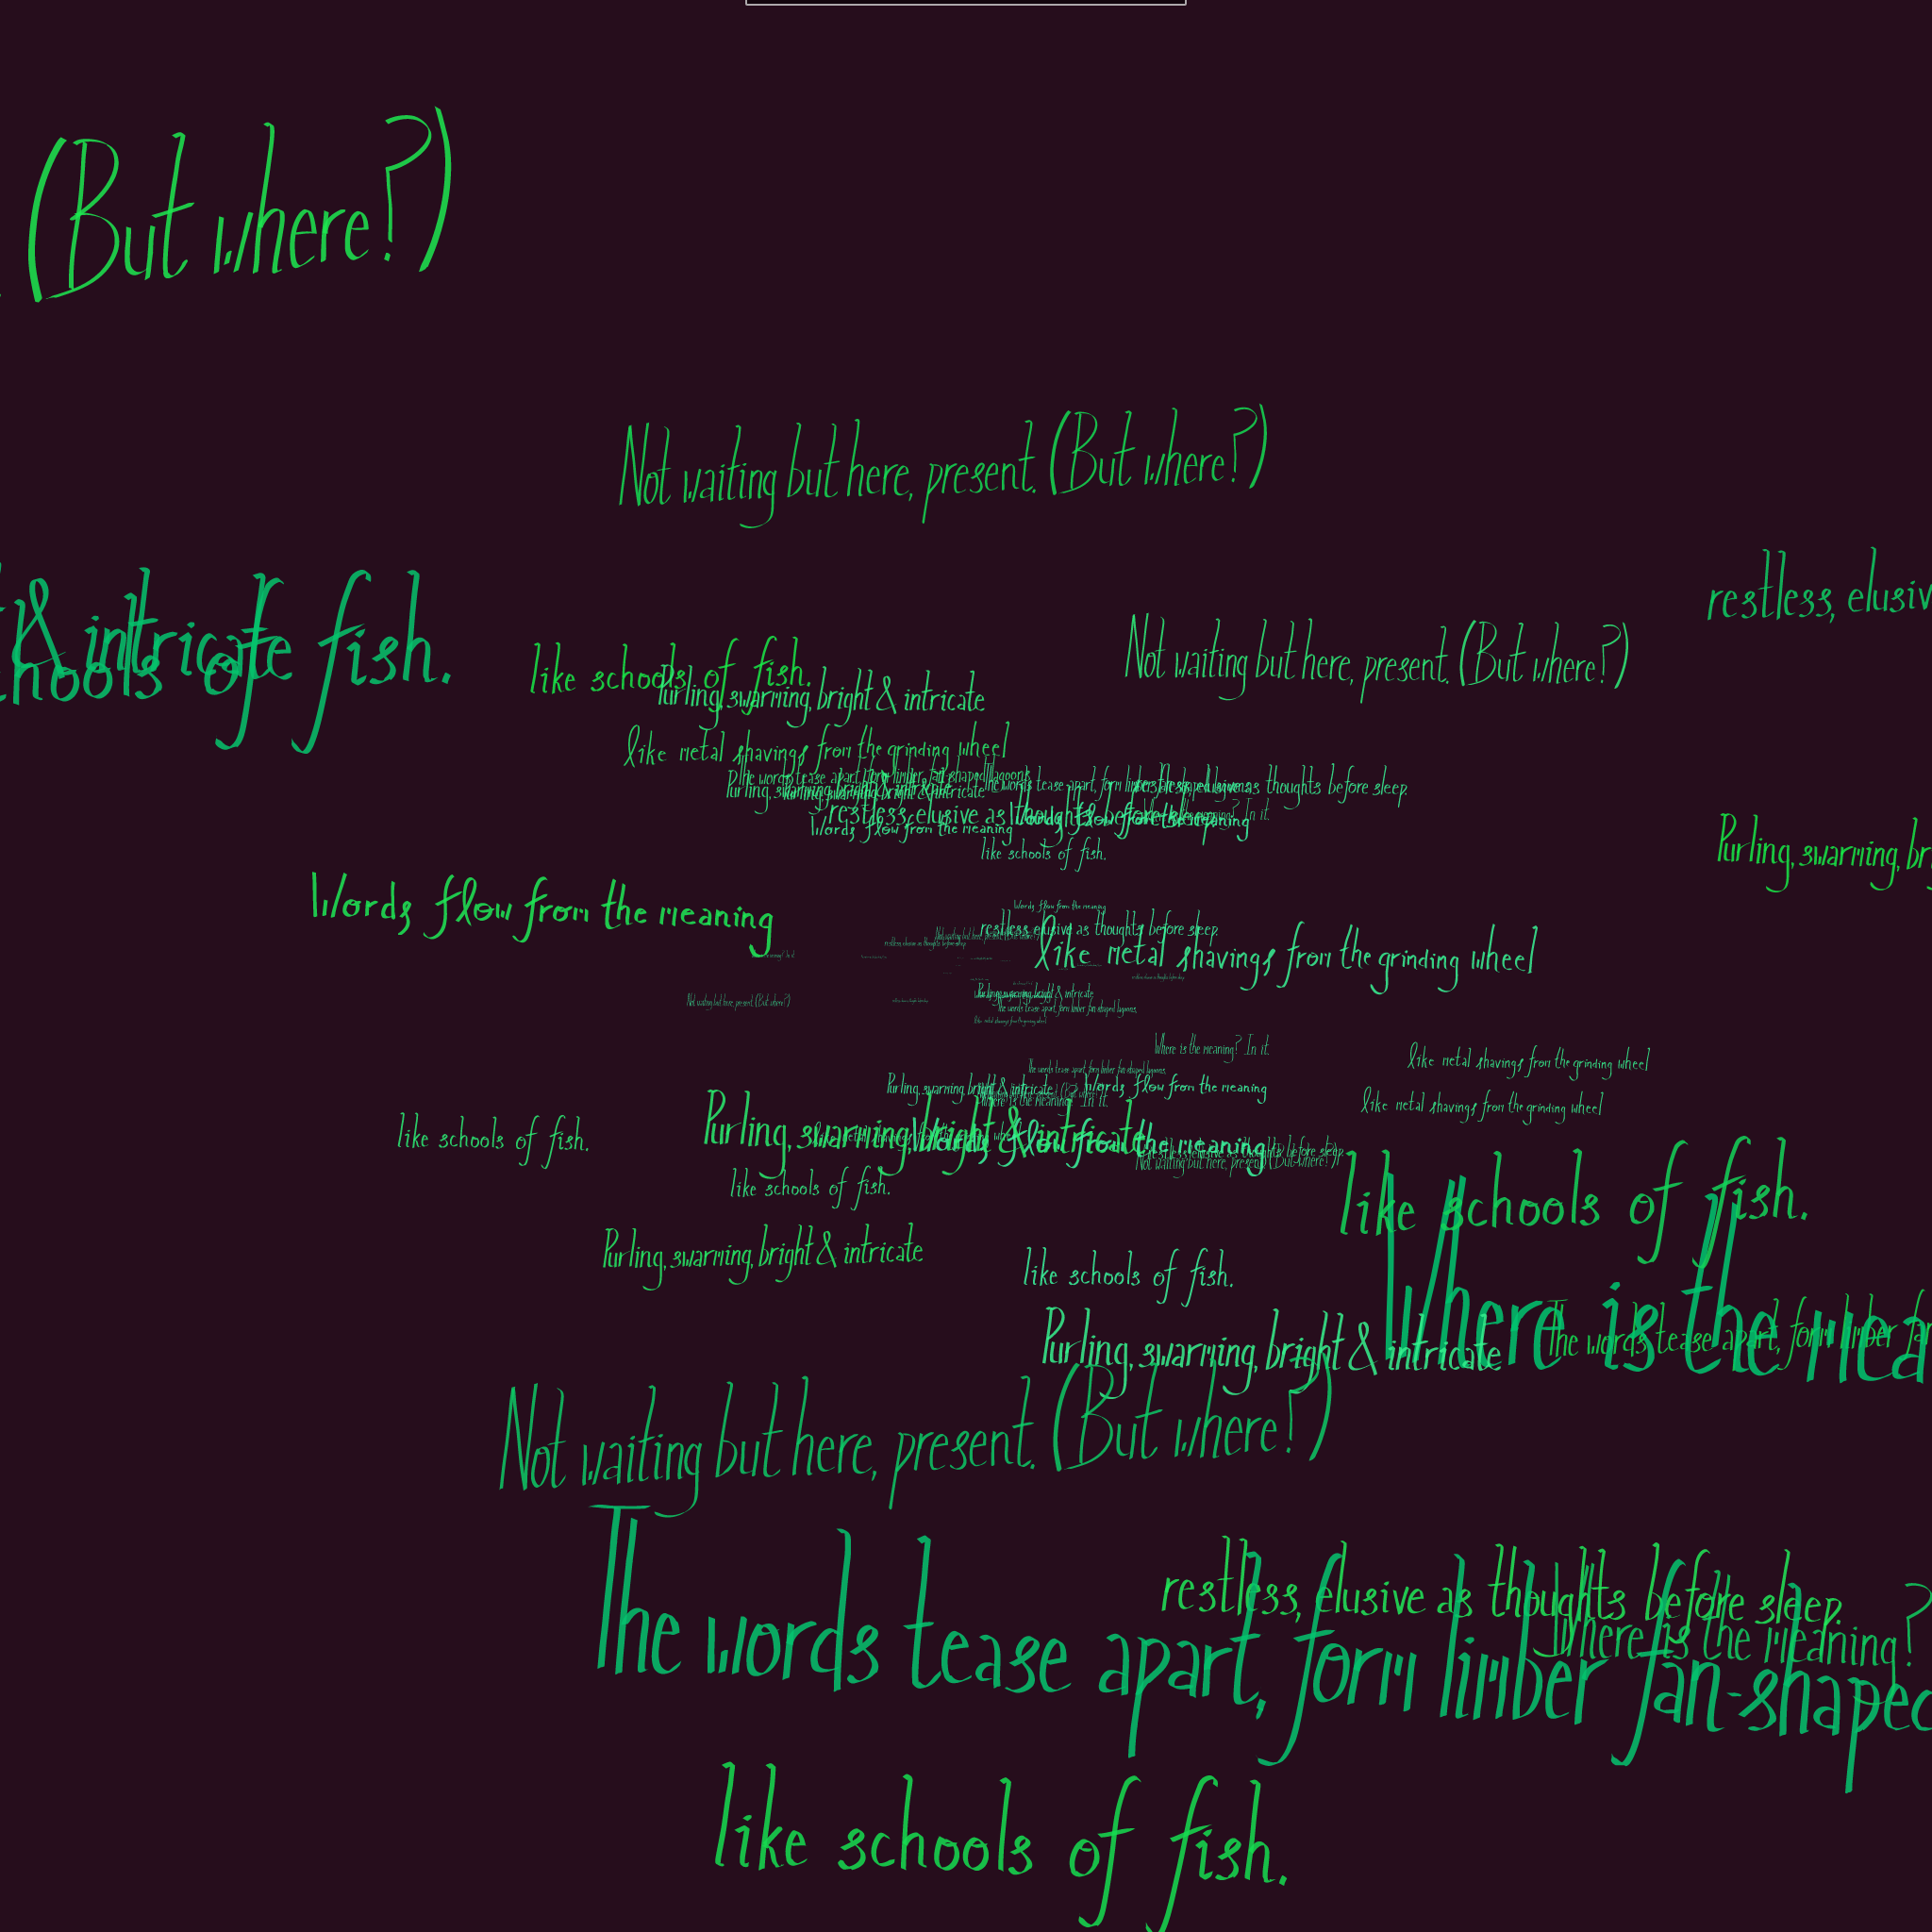 (But where?)
Not waiting but here, present. (But where?)
restless, elusiv
& intricate
hools of fish.
like schools of fish.
Not waiting but here, present. (But where?)
Purling, swarming, bright & intricate
like metal shavings from the grinding wheel
The words tease apart, form limber fan-shaped lagoons.
The words tease apart, form limber fan-shaped lagoons.
restless, elusive as thoughts before sleep.
Purling, swarming, bright & intricate
Purling, swarming, bright & intricate
restless, elusive as thoughts before sleep.
Where is the meaning? In it.
Words flow from the meaning
Words flow from the meaning
like schools of fish.
Purling, swarming, bri
Words flow from the meaning
Words flow from the meaning
restless, elusive as thoughts before sleep.
like metal shavings from the grinding wheel
Not waiting but here, present. (But where?)
Purling, swarming, bright & intricate
The words tease apart, form limber fan-shaped lagoons.
like metal shavings from the grinding wheel
Where is the meaning? In it.
like metal shavings from the grinding wheel
The words tease apart, form limber fan-shaped lagoons.
Purling, swarming, bright & intricate
Words flow from the meaning
Where is the meaning? In it.
like metal shavings from the grinding wheel
like schools of fish.
Purling, swarming, bright & intricate
Words flow from the meaning
like metal shavings from the grinding wheel
restless, elusive as thoughts before sleep.
Not waiting but here, present. (But where?)
like schools of fish.
like schools of fish.
Purling, swarming, bright & intricate
like schools of fish.
Where is the mea
The words tease apart, form limber fan
Purling, swarming, bright & intricate
Not waiting but here, present. (But where?)
restless, elusive as thoughts before sleep.
Where is the meaning?
The words tease apart, form limber fan-shaped
like schools of fish.